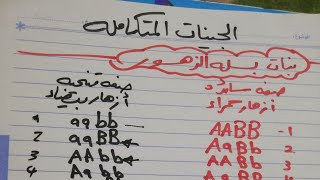 الجينات المتكاملة
نبات بسلة الزهور
صفة سائدة
أزهار حمراء
صفة متنحية
أزهار بيضاء
1- AABB
2 AaBb
3 AABb
4 AaBB
1 aabb
2 aaBB
3 AAbb
4 Aabb